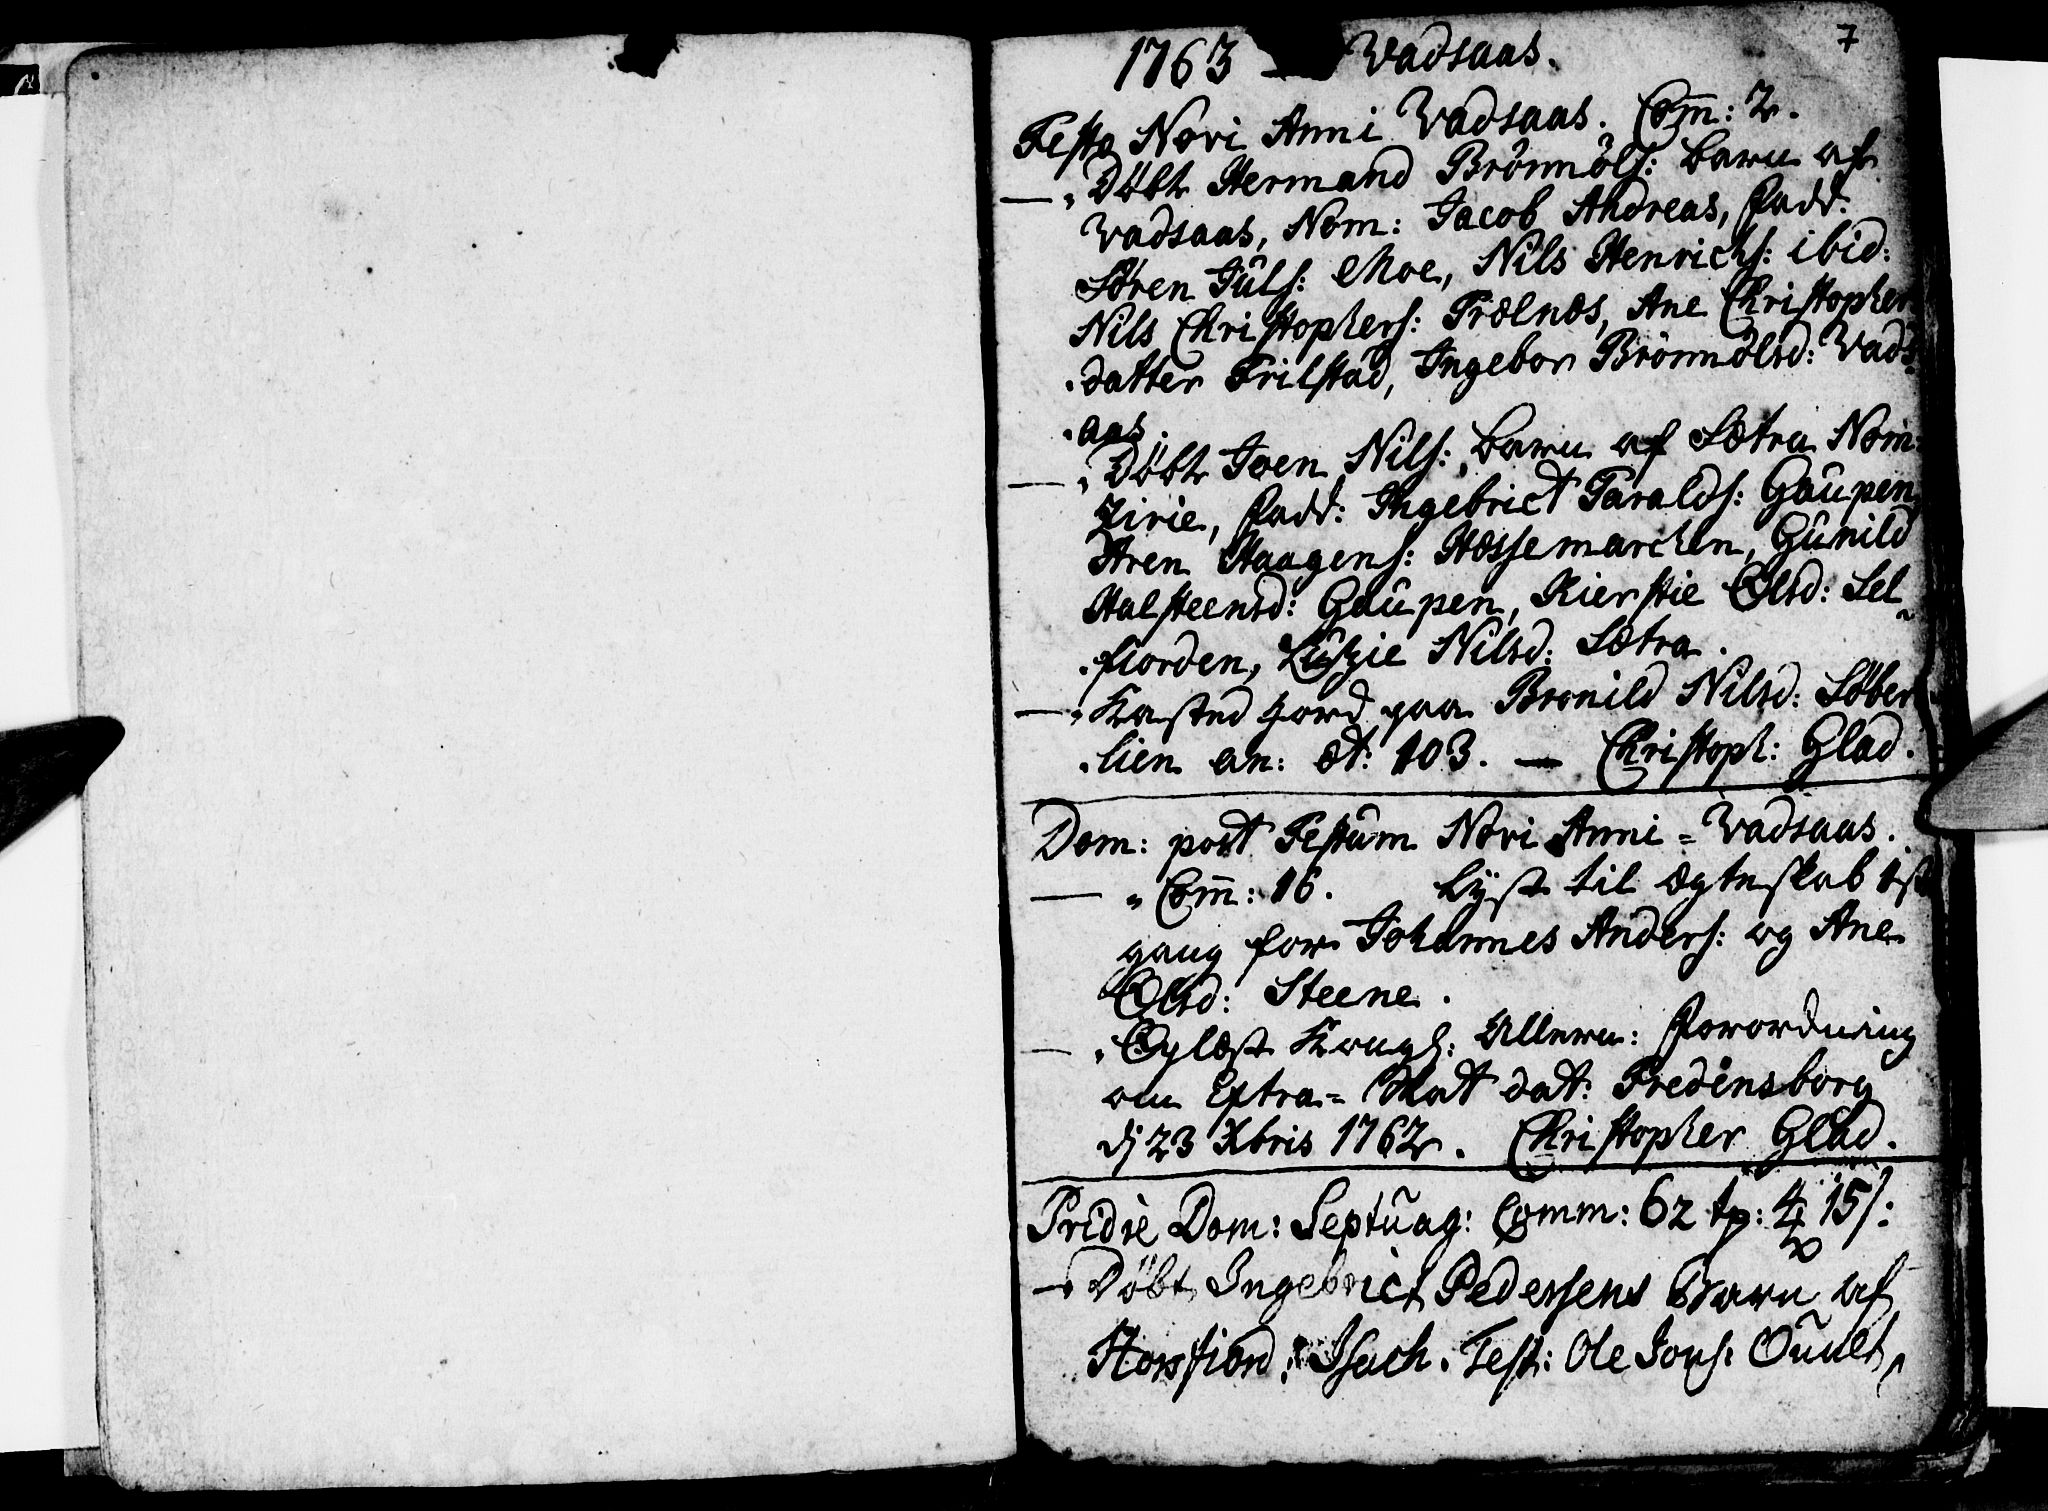 7
1763 — Vadsaas.
Festo Novi Anni Vadsaas. Com̅: 2.
—, Döbt Hermand Brönnöls: barn af
Vadsaas, Nom: Jacob Andreas, fadd:
Søren Juls: Moe, Nils Henrichs: ibid:
Nils Christophers: Trælnæs, Ane Christopher
datter Trilstad, Ingebor Brönnölsd: Vads
aas.
—, Döbt Joen Nils: barn af Sætra Nom:
Zirie, fadd: Ingebrict Taralds: Gaupen,
Aren Haagens: Hæssemarchen, Gunild
Halsteensd: Gaupen, Kierstie Olsd: Sel
fiorden, Luszie Nilsd: Sætra.
—, Kasted Jord paa Bronild Nilsd: Søber
lien an: æt: 103. — Christoph: Glad.
Dom: post Festum Novi Anni = Vadsaas.
— „ Com̅: 16. Lyst til ægteskab 1ste
gang for Johannes Anders: og Ane
Olsd: Steene.
—, Oplæst Kongl: Allern: forordning
om Extra= Skat dat: Fredensborg
dj 23 Xbris 1762. Christopher Glad.
Pridie Dom: Septuag: Comm: 62 tp: 4 15 s:
— Döbt Ingebrict Pedersens Barn af
Horsfiord, Isach. Test: Ole Jons: